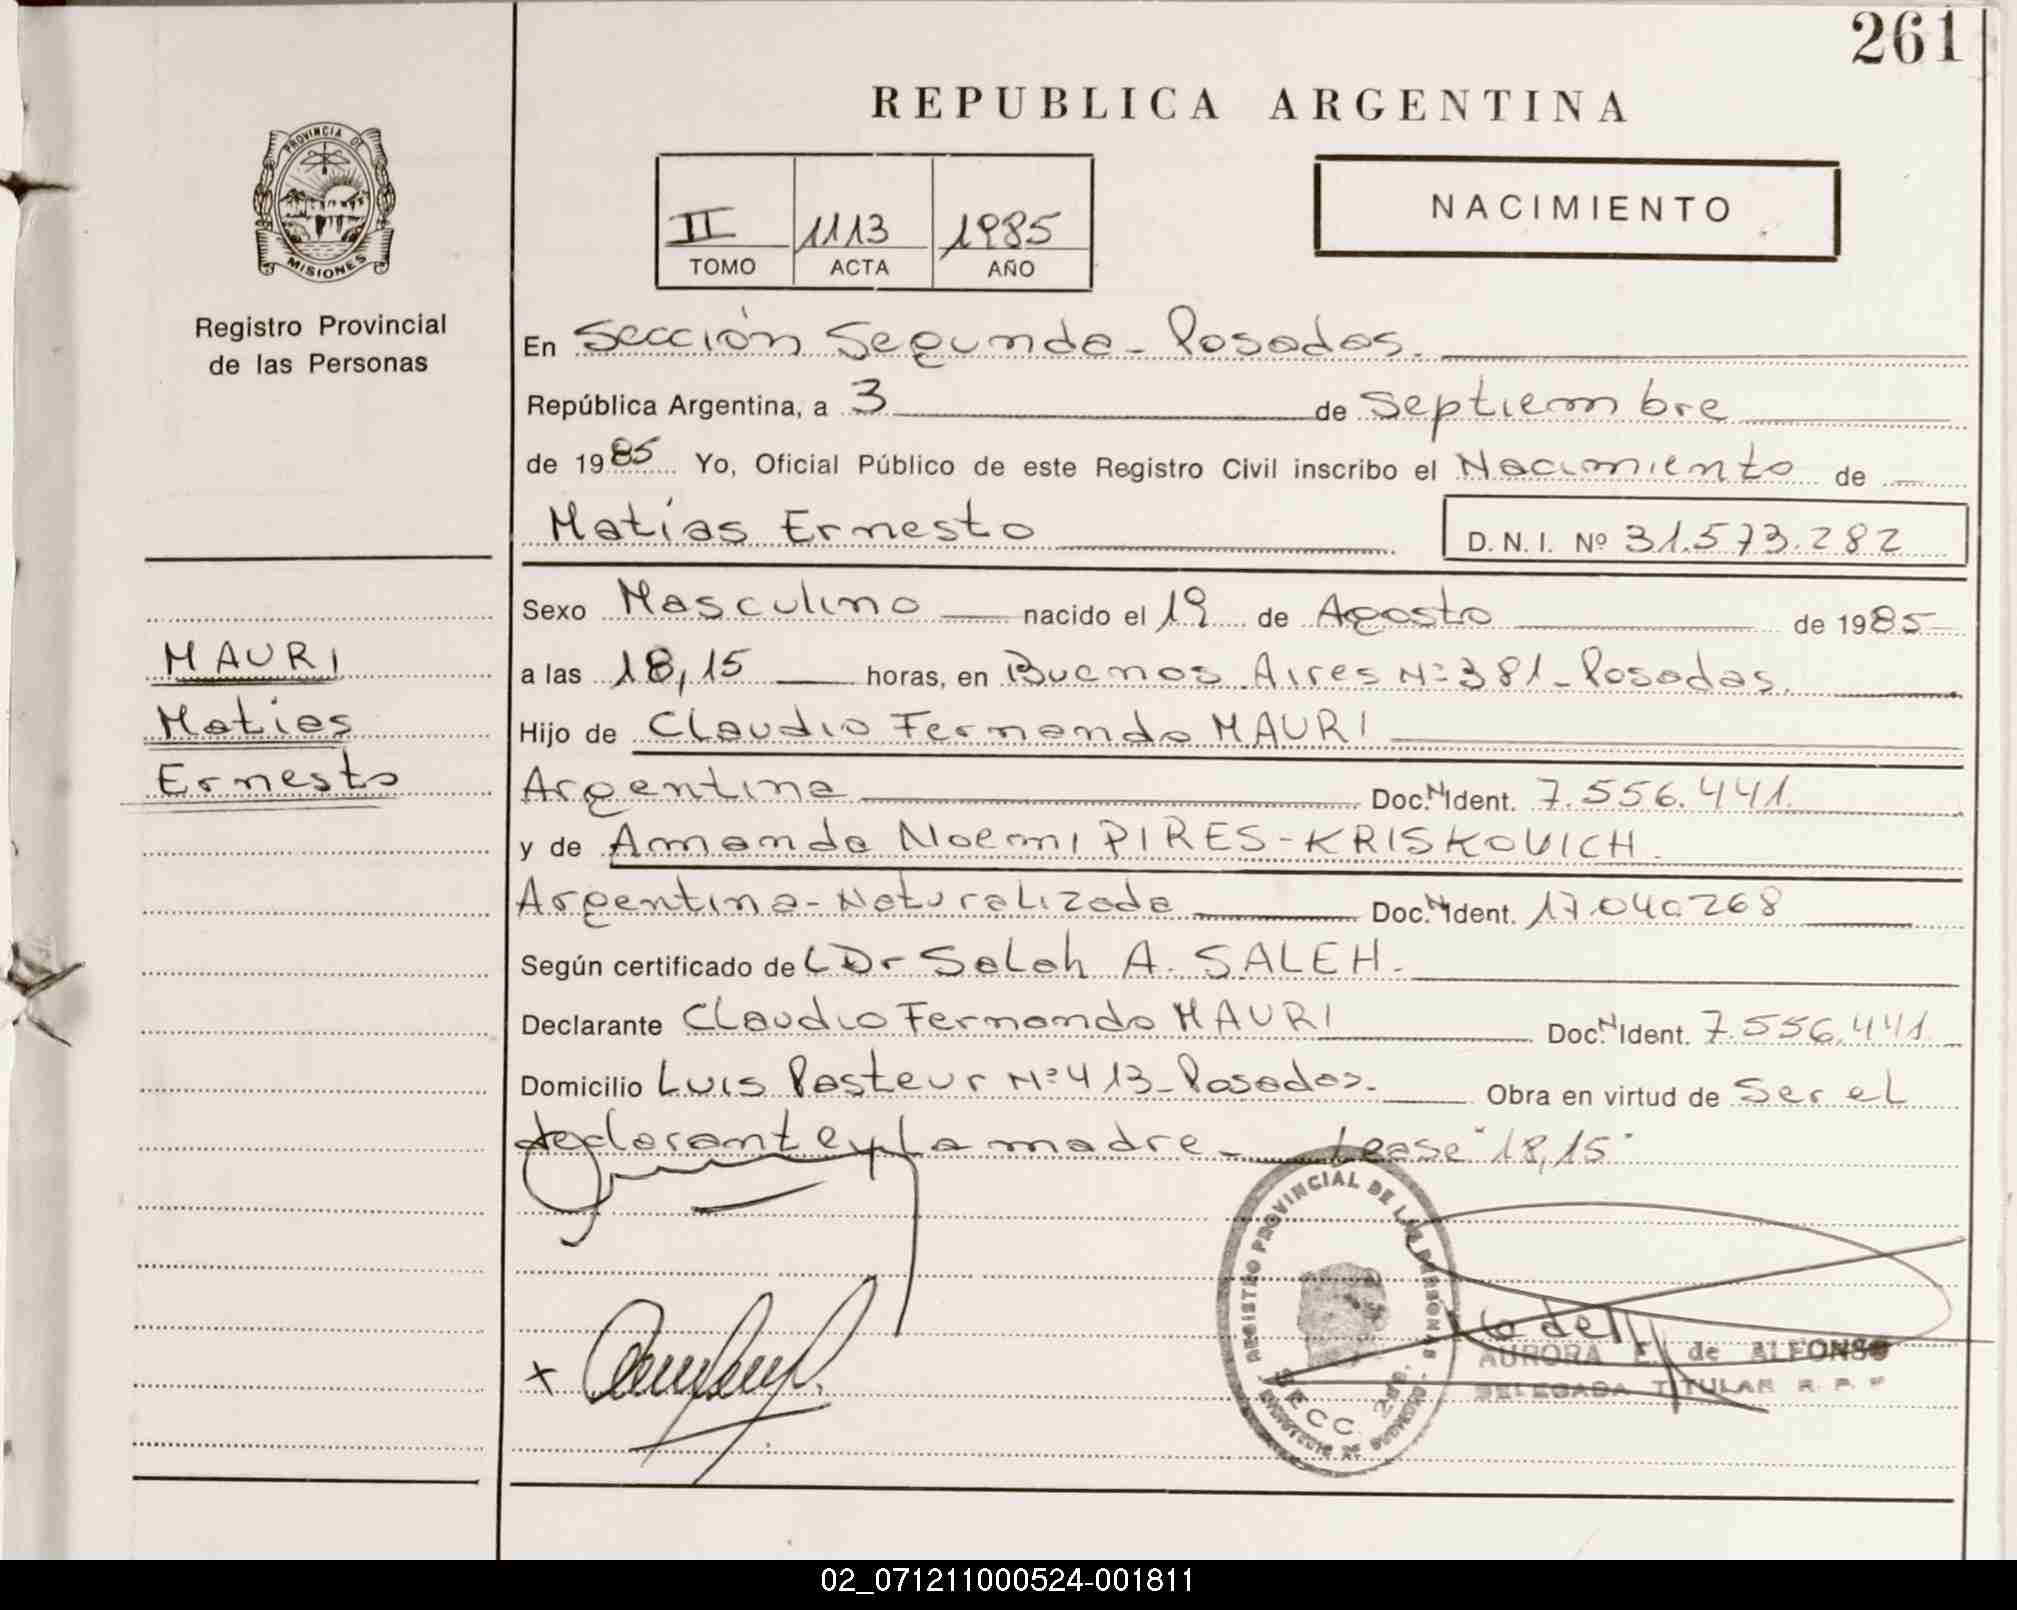 261
REPUBLICA ARGENTINA
PROVINCIA DE
MISIONES
Registro Provincial
de las Personas
II 1113 1985
TOMO ACTA AÑO
NACIMIENTO
En Sección Segunda - Posadas.
República Argentina, a 3 de Septiembre
de 1985 Yo, Oficial Público de este Registro Civil inscribo el Nacimiento de
Matías Ernesto
D.N.I. Nº 31.573.282
Sexo Masculino nacido el 19 de Agosto de 1985
a las 18,15 horas, en Buenos Aires Nº 381 - Posadas.
Hijo de Claudio Fernando MAURI
Argentina Doc. N Ident. 7.556.441
y de Amanda Noemi PIRES-KRISKOVICH.
Argentina - Naturalizada Doc. N Ident. 17.040.268
Según certificado de Dr Salah A. SALEH.
Declarante Claudio Fernando MAURI Doc. N Ident. 7.556.441
Domicilio Luis Pasteur Nº 413 - Posadas. Obra en virtud de Ser el
declarante y la madre - Lease "18,15"
MAURI
Matias
Ernesto
REGISTRO PROVINCIAL DE LAS PERSONAS
SECC. 2da.
AURORA E. de ALFONSO
DELEGADA TITULAR R. P. P
02_071211000524-001811